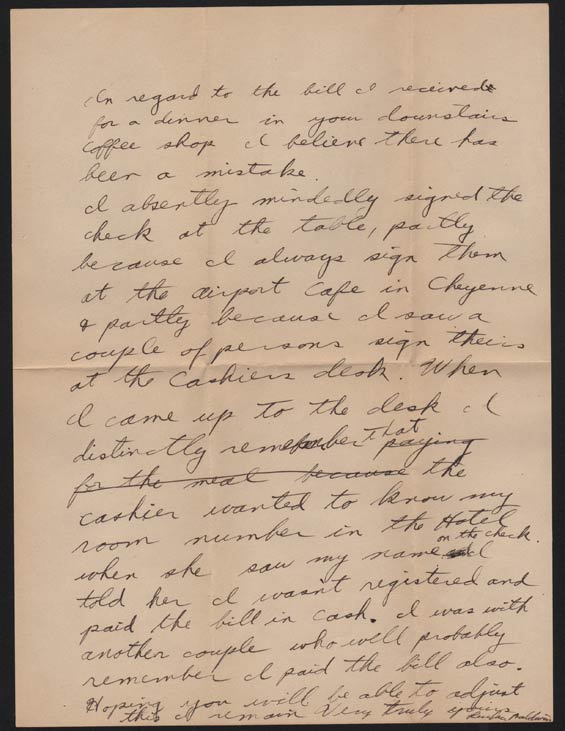 In regard to the bill I received
for a dinner in your downstairs
coffee shop I believe there has
been a mistake.
I absently mindedly signed the
check at the table, partly
because I always sign them
at the airport Cafe in Cheyenne
& partly because I saw a
couple of persons sign theirs
at the Cashiers desk. When
I came up to the desk I
distinctly remember that paying
for the meal because the
cashier wanted to know my
room number in the Hotel
when she saw my name on the check. I
told her I wasn't registered and
paid the bill in cash. I was with
another couple who will probably
remember I paid the bill also.
Hoping you will be able to adjust
this I remain Very truly yours
Baldwin